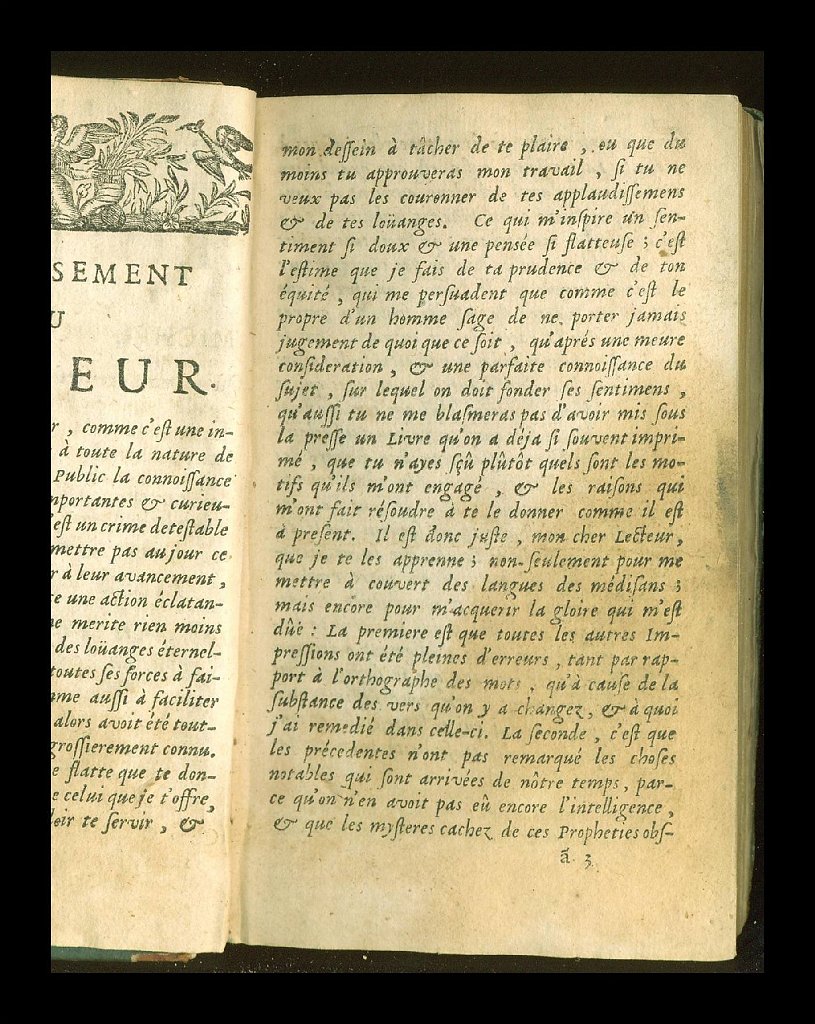 SEMENT
U
EUR.
r, comme c'eſt une in-
à toute la nature de
Public la connoiſſance
mportantes & curieu-
'eſt un crime deteſtable
mettre pas au jour ce
r à leur avancement,
e une action éclatan-
ne merite rien moins
des loüanges éternel-
toutes ſes forces à fai-
mme auſſi à faciliter
alors avoit été tout-
groſſierement connu.
e flatte que te don-
e celui que je t'offre,
loir te ſervir, &
mon deſſein à tâcher de te plaire, ou que du
moins tu approuveras mon travail, ſi tu ne
veux pas les couronner de tes applaudiſſemens
& de tes loüanges. Ce qui m'inſpire un ſen-
timent ſi doux & une penſée ſi flatteuſe ; c'eſt
l'eſtime que je fais de ta prudence & de ton
équité, qui me perſuadent que comme c'eſt le
propre d'un homme ſage de ne porter jamais
jugement de quoi que ce ſoit, qu'aprés une meure
conſideration, & une parfaite connoiſſance du
ſujet, ſur lequel on doit fonder ſes ſentimens,
qu'auſſi tu ne me blaſmeras pas d'avoir mis ſous
la preſſe un Livre qu'on a déja ſi ſouvent impri-
mé, que tu n'ayes ſçû plûtôt quels ſont les mo-
tifs qu'ils m'ont engagé, & les raiſons qui
m'ont fait réſoudre à te le donner comme il eſt
à preſent. Il eſt donc juſte, mon cher Lecteur,
que je te les apprenne ; non-ſeulement pour me
mettre à couvert des langues des médiſans ;
mais encore pour m'acquerir la gloire qui m'eſt
dûe : La premiere eſt que toutes les autres Im-
preſſions ont été pleines d'erreurs, tant par rap-
port à l'orthographe des mots, qu'à cauſe de la
ſubſtance des vers qu'on y a changez, & à quoi
j'ai remedié dans celle-ci. La ſeconde, c'eſt que
les précedentes n'ont pas remarqué les choſes
notables qui ſont arrivées de nôtre temps, par-
ce qu'on n'en avoit pas eû encore l'intelligence,
& que les myſteres cachez de ces Propheties obſ-
ã 3